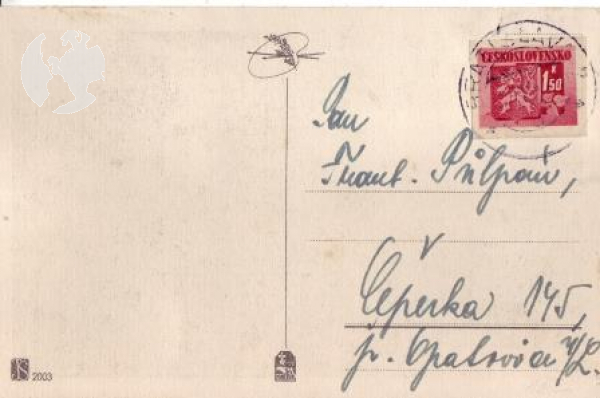 ČESKOSLOVENSKO
K
1.50
Pan
Frant. Půlpán,
Čeperka 145,
p. Opatovice n/L.
2003